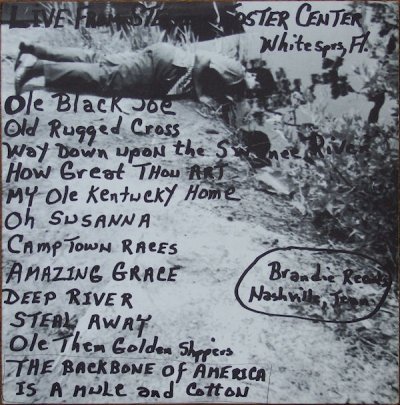 Live From Stephen Foster Center
White Sprs, Fl.
Ole Black Joe
Old Rugged Cross
Way Down upon the Swanee River
How Great Thou Art
My Ole Kentucky Home
Oh Susanna
Camptown Races
Amazing Grace
Deep River
Steal Away
Ole Them Golden Slippers
The Backbone of America
Is a Mule and Cotton
Brandie Records
Nashville, Tenn.